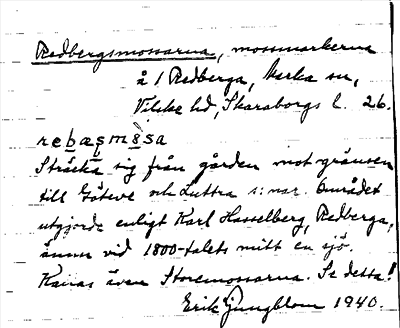 Redbergsmossarna, mossmarkerna
å 1 Redberga, Marka sn,
Vilske hd, Skaraborgs l. 26.
rebæṣmɔsa
Sträcka sig från gården mot gränsen
till Göteve och Luttra s:nar. Området
utgjorde enligt Karl Hasselberg, Redberga,
ännu vid 1800-talets mitt en sjö.
Kallas även Storemossarna. Se detta!
Erik Ljungblom 1940.